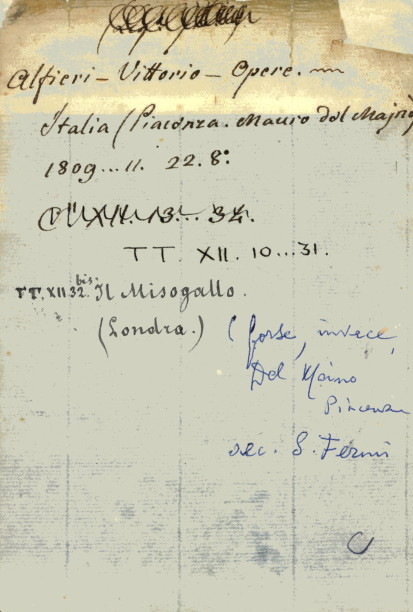 Alfieri - Vittorio - Opere.
Italia (Piacenza. Mauro del Majno
1809...11. 22. 8:
TT. XII. 10...31.
TT. XII 32. bis. Il Misogallo.
(Londra.) (forse, invece,
Del Maino
Piacenza
sec. S. Fermi